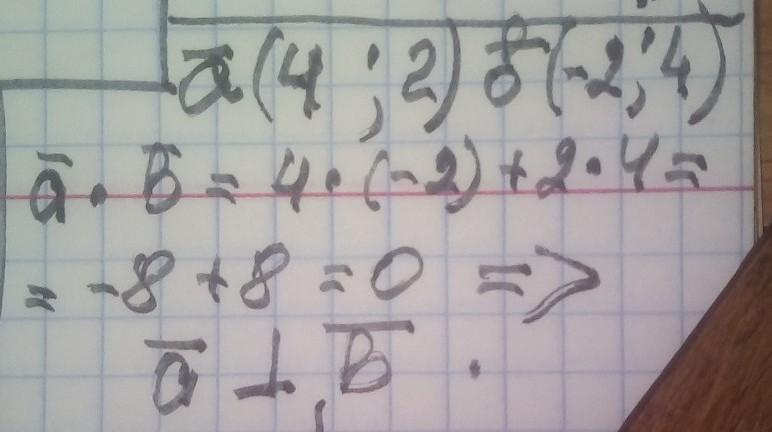 a̅(4;2) b̅(-2;4)
a̅ · b̅ = 4·(-2)+2·4=
= -8+8 = 0 =>
a̅ ⊥ b̅.